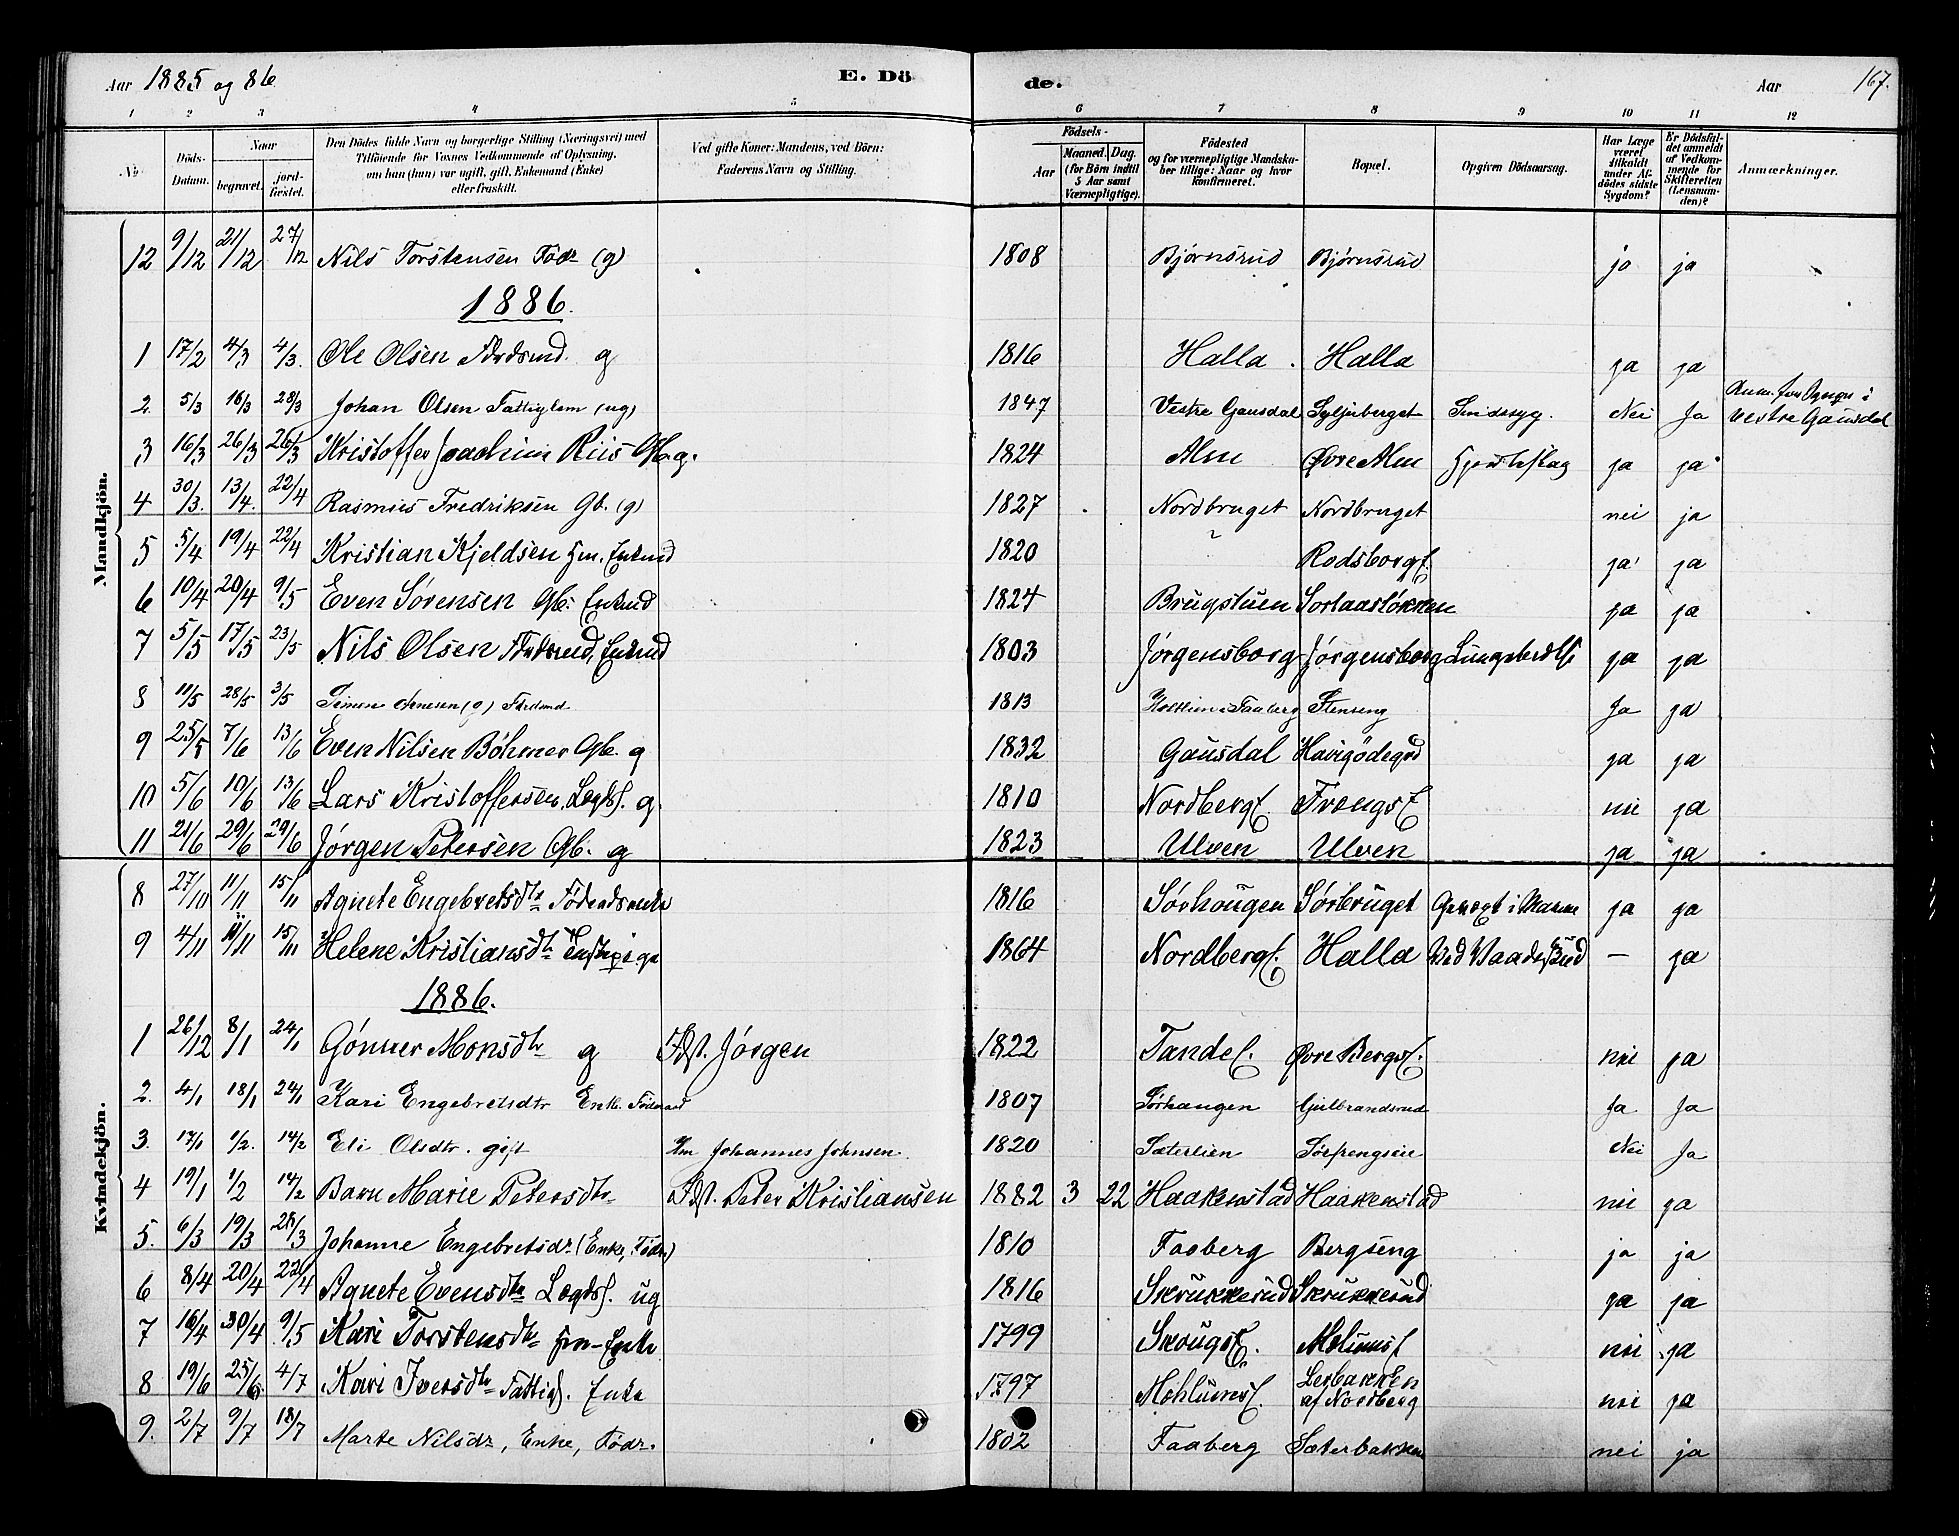 Aar 1885 og 86 E. Dö de. Aar 167.
1 2 3 4 5 6 7 8 9 10 11 12
No. Döds-Datum. Naar begravet. jord-fæstet. Den Dödes fulde Navn og borgerlige Stilling (Næringsvei) med Tilföiende for Voxnes Vedkommende af Oplysning, om han (hun) var ugift, gift, Enkemand (Enke) eller fraskilt. Ved gifte Koner: Mandens, ved Börn: Faderens Navn og Stilling. Födsels- Aar Maaned. Dag. (for Börn indtil 5 Aar samt Værnepligtige). Födested og for værnepligtige Mandskaber tillige: Naar og hvor konfirmeret. Bopæl. Opgiven Dödsaarsag. Har Læge været tilkaldt under Afdödes sidste Sygdom? Er Dödsfaldet anmeldt af Vedkommende for Skifteretten (Lensmanden)? Anmærkninger.
Mandkjön.
12 9/12 21/12 27/12 Nils Torstensen Födr (g) 1808 Bjørnsrud Bjørnsrud ja ja
1886.
1 17/2 4/3 4/3 Ole Olsen g 1816 Halla Halla ja ja
2. 5/3 16/3 28/3 Johan Olsen Fattiglem (ug) 1847 Vestre Gausdal Syljuberget Sindssyg. Nei Ja Vestre Gausdal
3 16/3 26/3 26/3 Kristoffer Joachim Riis Gb. g. 1824 Alm Øvre Alm Hjerteslag ja ja
4 30/3. 13/4. 22/4 Rasmus Fredriksen Gb. (g) 1827 Nordbruget Nordbruget nei ja
5 5/4 19/4 22/4 Kristian Kjeldsen Hm. Enkmd 1820 Rodsborgf. ja ja
6 10/4 20/4 9/5 Even Sørensen Gb. Enkmd 1824 Brugstuen Sorlaasløkken ja ja
7 5/5 17/5 23/5 Nils Olsen Enkmd 1803 Jørgensborg Jørgensborg ja ja
8 11/5 28/5 3/5 Simen (g) 1813 i Faaberg Stenseng Ja ja
9 25/5 7/6 13/6 Even Nilsen Böhmer Gb. g 1832 Gausdal ja ja
10 5/6 10/6 13/6 Lars Kristoffersen Lægdsl. g. 1810 Nordbergf. nei ja
11 21/6 29/6 29/6 Jørgen Petersen Gb. g 1823 Ulven Ulven ja ja
Kvindekjön.
8 27/10 11/11 15/11 Agnete Engebretsdtr 1816 Sörhougen Sörbruget i ja ja
9 4/11 11/11 15/11 Helene Kristiansdtr 1864 Nordbergf. Halla — ja
1886.
1 26/12 8/1 24/1 Gönner Monsdtr g Jørgen 1822 Tandef. Øvre Bergsf. nei ja
2. 4/1 18/1 24/1 Kari Engebretsdtr Enke 1807 Sörhaugen Gulbrandsrud Ja Ja
3. 17/1 1/2. 14/2 Eli Olsdtr. gift Hm Johannes Johnsen. 1820 Sæterlien Nei Ja
4 19/1 1/2 14/2 Barn Marie Petersdtr Peter Kristiansen 1882 3 22 Haakenstad Haakenstad nei ja
5. 6/3 19/3 28/3 Johanne Engebretsdr. (Enke, Födr) 1810 Faaberg Bergseng ja ja
6 8/4 20/4 22/4 Agnete Evensdtr Lægdsl. ug 1816 Skrukkerud Skrukkerud ja ja
7 16/4 30/4 9/5 Kari Torstensdtr Hm-Enke 1799 nei ja
8 19/6 25/6 4/7 Kari Iversdtr Enke 1797 Mohlumsf. Lerbakken af Nordberg nei ja
9. 2/7 9/7 18/7 Marte Nilsdr, Enke, Födr. 1802 Faaberg Sæterbakken nei ja